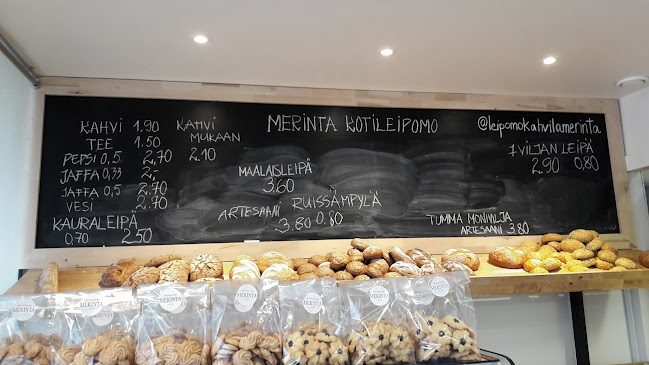 KAHVI 1.90
TEE 1.50
PEPSI 0,5 2,70
JAFFA 0,33 2,-
JAFFA 0,5 2.70
VESI 2.70
KAURALEIPÄ
0.70 2.50
KAHVI
MUKAAN
2.10
MERINTA KOTILEIPOMO
MAALAISLEIPÄ
3.60
RUISSÄMPYLÄ
0.80
ARTESAANI 3.80
@leipomokahvilamerinta
7 VILJAN LEIPÄ
2.90 0,80
TUMMA MONIVILJA
ARTESAANI 3.80
MERINTA
MERINTA
MERINTA
MERINTA
MERINTA
MERINTA
MERINTA